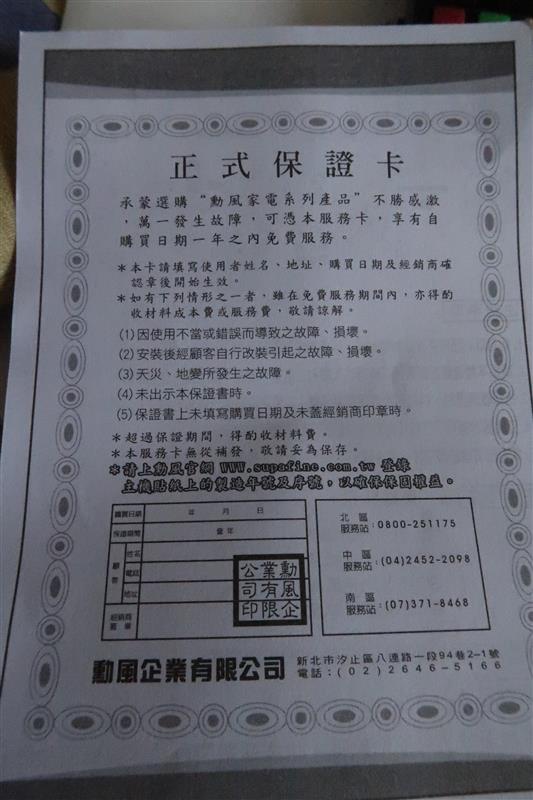 正式保證卡
承蒙選購“勳風家電系列產品”不勝感激
，萬一發生故障，可憑本服務卡，享有自
購買日期一年之內免費服務。
＊本卡請填寫使用者姓名、地址、購買日期及經銷商確
認章後開始生效。
＊如有下列情形之一者，雖在免費服務期間內，亦得酌
收材料成本費或服務費，敬請諒解。
(1)因使用不當或錯誤而導致之故障、損壞。
(2)安裝後經顧客自行改裝引起之故障、損壞。
(3)天災、地變所發生之故障。
(4)未出示本保證書時。
(5)保證書上未填寫購買日期及未蓋經銷商印章時。
＊超過保證期間，得酌收材料費。
＊本服務卡無從補發，敬請妥為保存。
＊請上勳風官網 WWW.supafine.com.tw 登錄
主機貼紙上的製造年號及序號，以確保保固權益。
購買日期 年 月 日
保證期間 壹年
顧客 姓名
電話
地址
經銷商
蓋章
勳風企
業有限
公司印
北區
服務站：0800-251175
中區
服務站：(04)2452-2098
南區
服務站：(07)371-8468
勳風企業有限公司
新北市汐止區八連路一段94巷2-1號
電話：(02)2646-5166